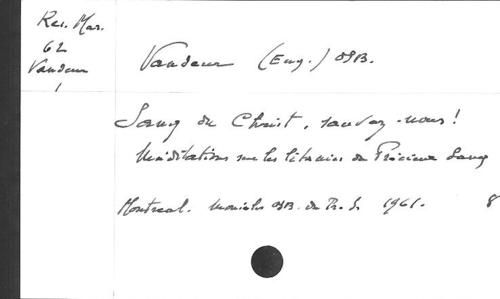 Rel. Mar.
62
Vandeur
1
Vandeur (Eug.) OSB.
Sang du Christ, sauvez-nous!
Méditations sur les litanies du Précieux Sang
Montreal. Moniales OSB. du P. S. 1961. 8